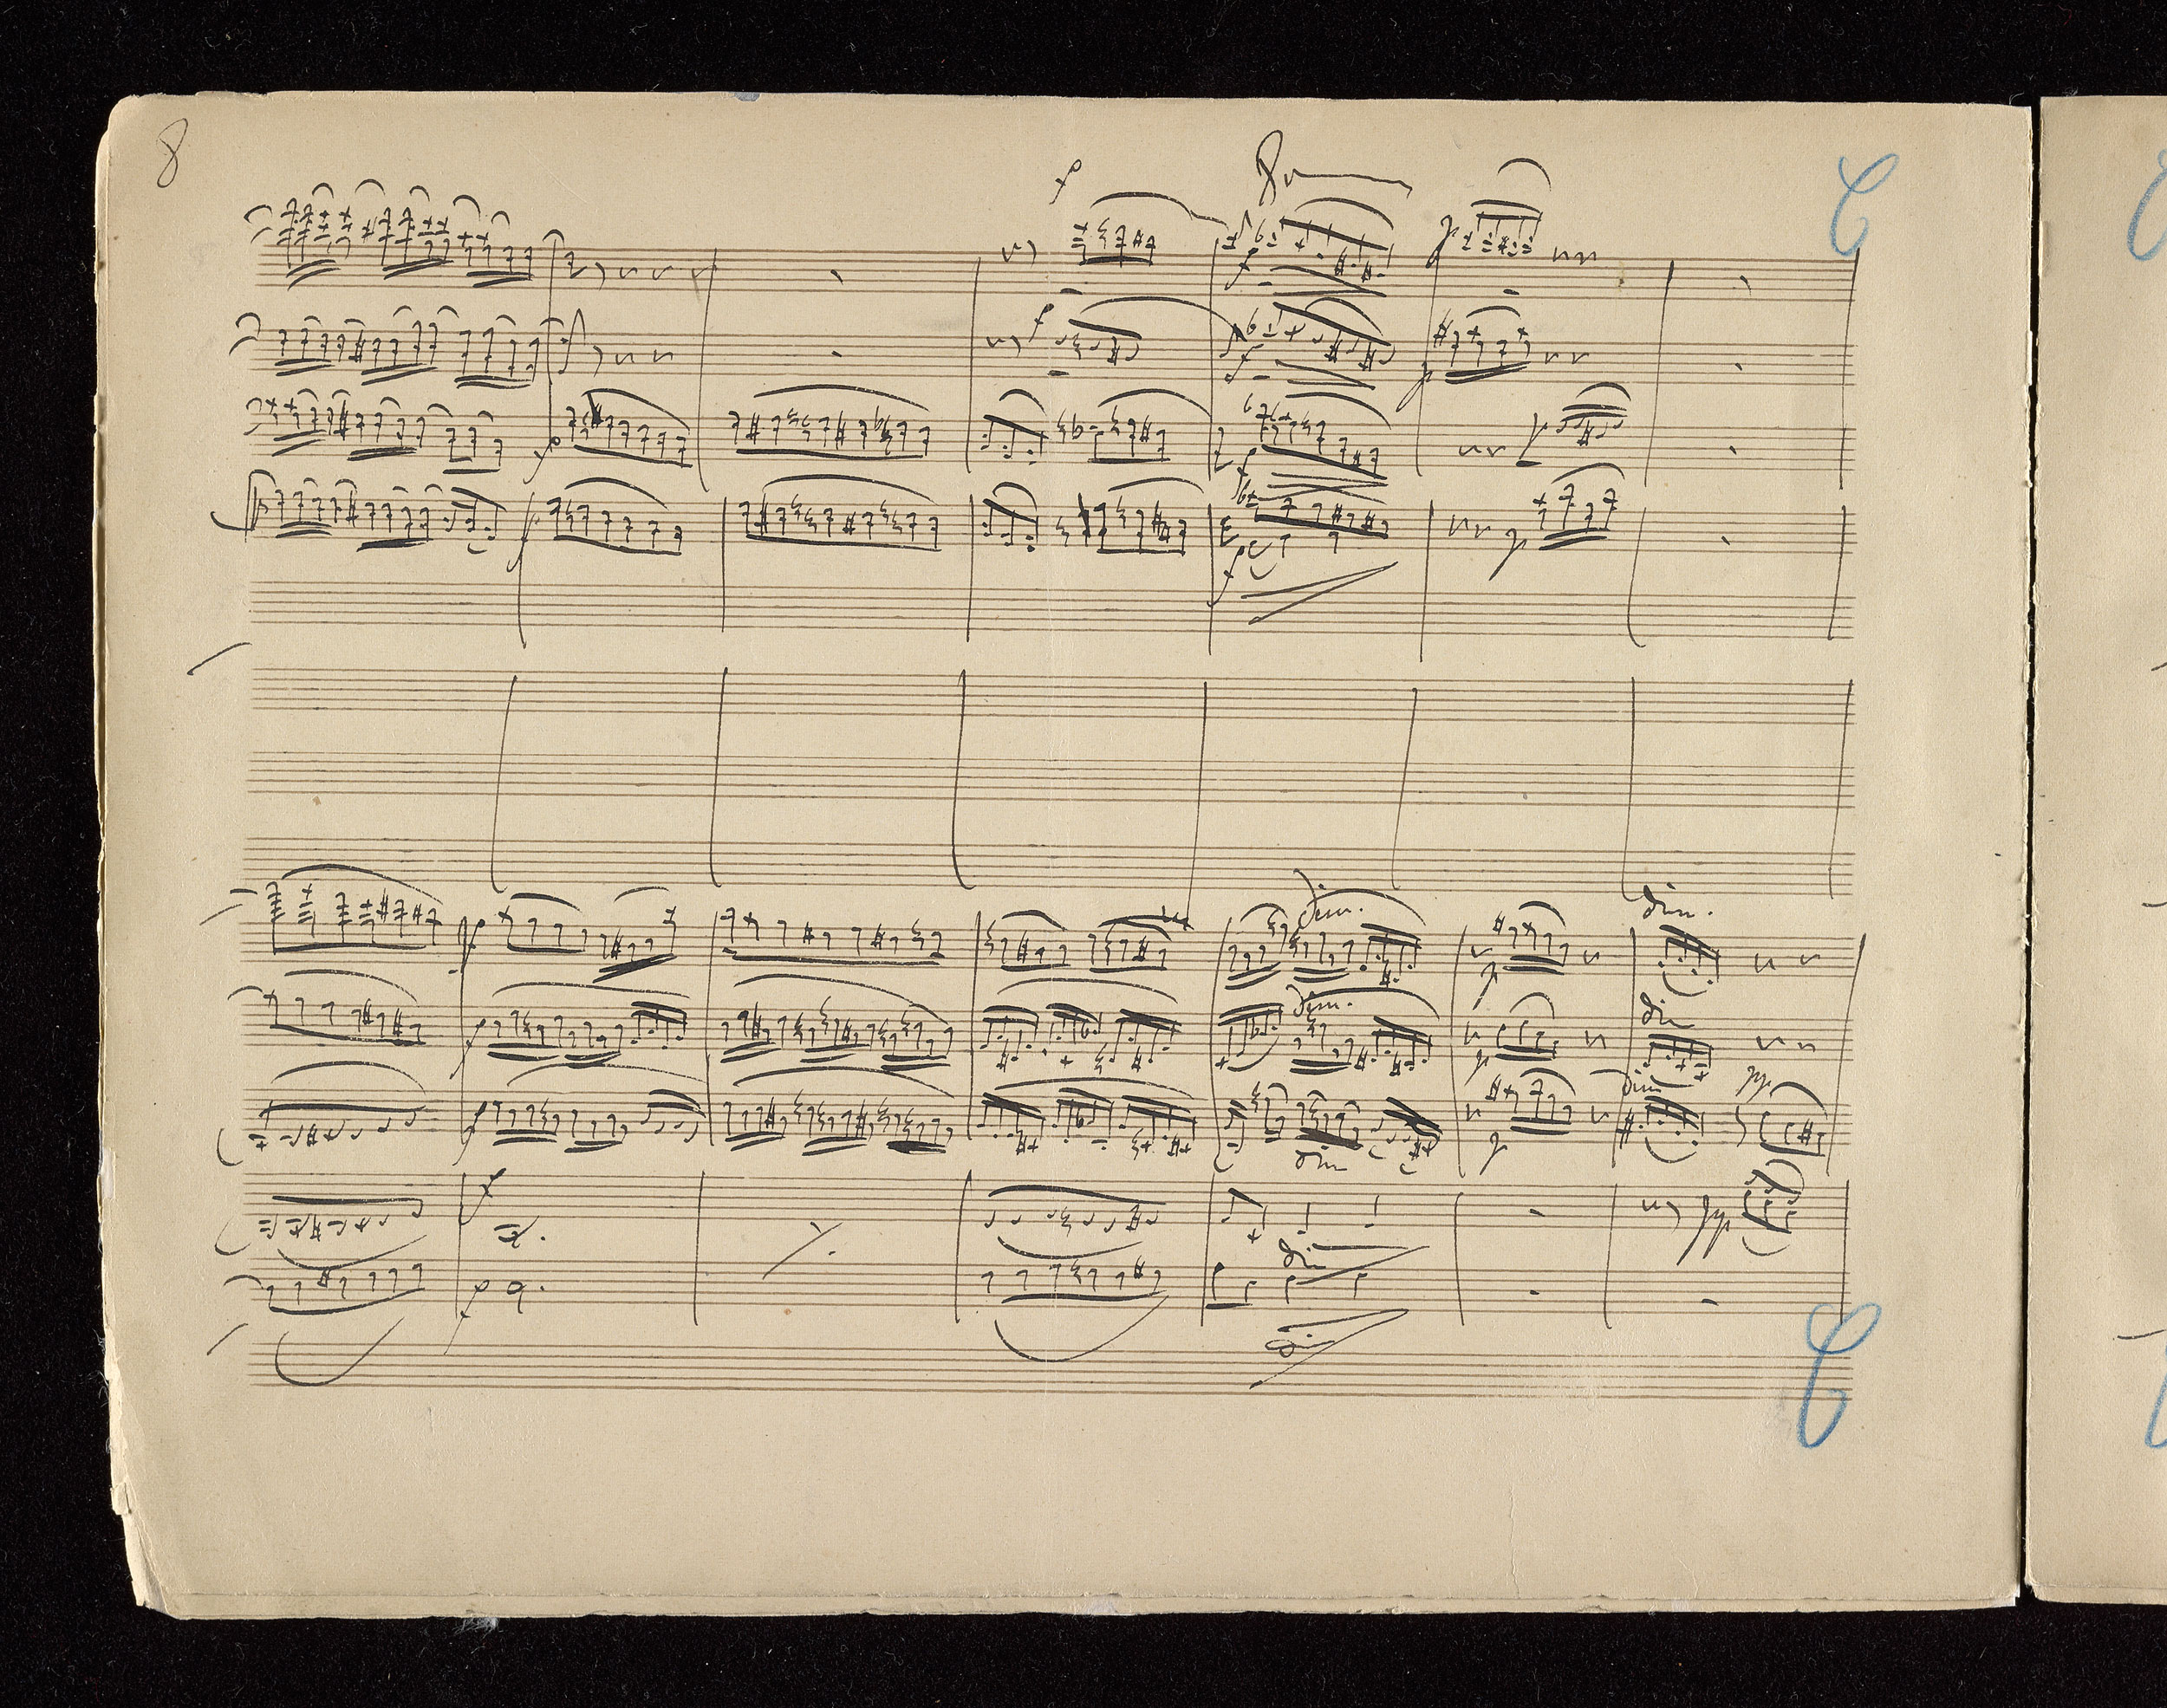 8
C
f
8
f
p
f
f
p
f
f
p
f
p
f
dim.
dim.
f
p
dim.
dim
f
p
dim
pp
f
p
dim
f
pp
dim
f
dim
C